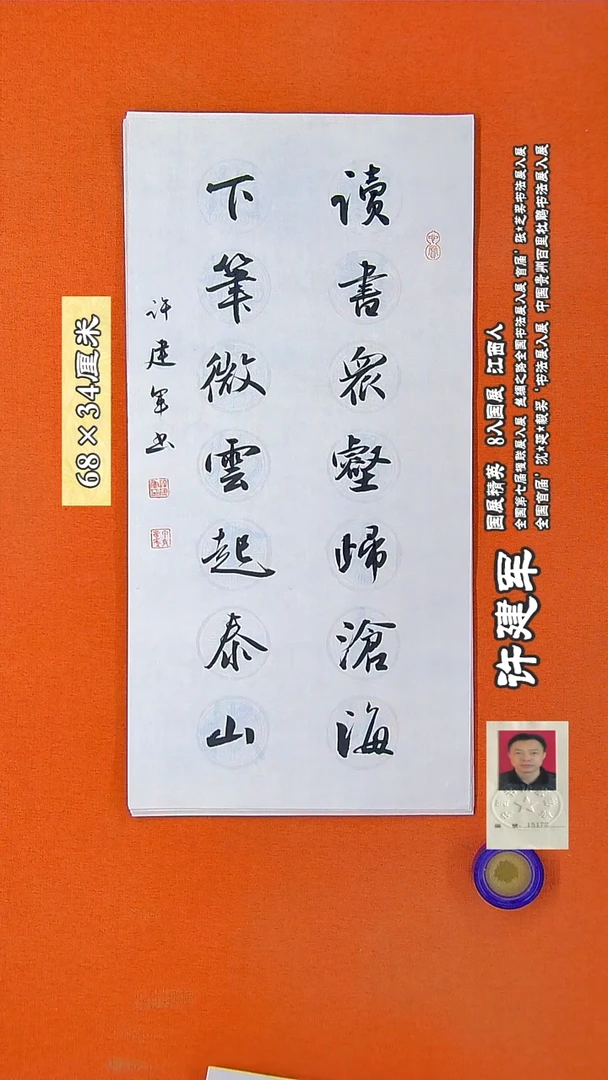 读書眾壑歸滄海
下筆微雲起泰山
许建军书
68×34厘米
许建军
国展精英 8入国展 江西人
全国第七届楹联展入展 丝绸之路全国书法展入展 首届‘张★芝奖书法展入展
全国首届‘沈★延★毅奖‘书法展入展 中国贵州百里杜鹃书法展入展